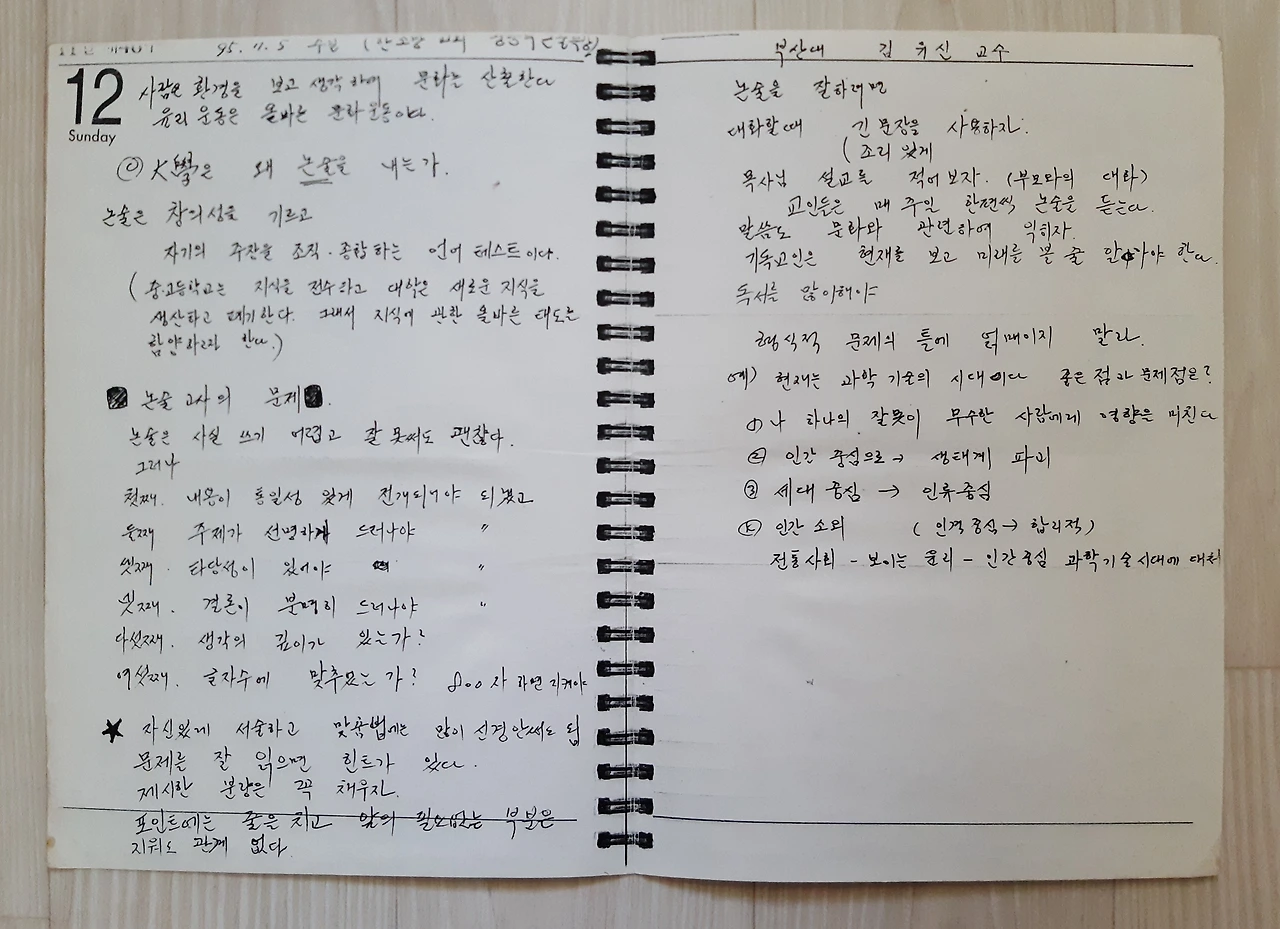 95. 11. 5
12
Sunday
사람은 환경을 보고 생각하며 문화는 산출한다
윤리운동은 올바른 문화운동이다.
大學은 왜 논술을 내는가.
논술은 창의성을 기르고
자기의 주찬을 조직·종합하는 언어 테스트이다.
(중·고등학교는 지식을 전수하고 대학은 새로운 지식을
생산하고 폐기한다. 그래서 지식에 관한 올바른 태도는
함양하고자 한다.)
논술고사의 문제.
논술은 사실 쓰기 어렵고 잘 못써도 괜찮다.
그러나
첫째. 내용이 통일성 있게 전개되어야 되겠고
둘째 주제가 선명하게 드러나야 "
셋째. 타당성이 있어야 "
넷째. 결론이 분명히 드러나야 "
다섯째. 생각의 깊이가 있는가?
여섯째. 글자수에 맞추었는가? 800자 하면 지켜야
★ 자신있게 서술하고 맞춤법에는 많이 신경안써도 됨
문제를 잘 읽으면 힌트가 있다.
제시한 분량은 꼭 채우자.
포인트에는 줄을 치고 앞의 필요없는 부분은
지워도 관계 없다.
부산대 김유신 교수
논술을 잘하려면
대화할때 긴 문장을 사용하자.
(조리 있게
목사님 설교를 적어보자. (부모와의 대화)
교인들은 매 주일 한편씩 논술을 듣는다.
말씀도 문화와 관련하여 익히자.
기독교인은 현재를 보고 미래를 볼 줄 알아야 한다.
독서를 많이해야
형식적 문제의 틀에 얽매이지 말라.
예) 현재는 과학 기술의 시대이다 좋은점과 문제점은?
① 나 하나의 잘못이 무수한 사람에게 영향을 미친다
② 인간 중심으로 → 생태계 파괴
③ 세대 중심 → 인류중심
④ 인간 소외 (인격 중심 → 합리적)
전통사회 - 보이는 윤리 - 인간중심 과학기술시대에 대처